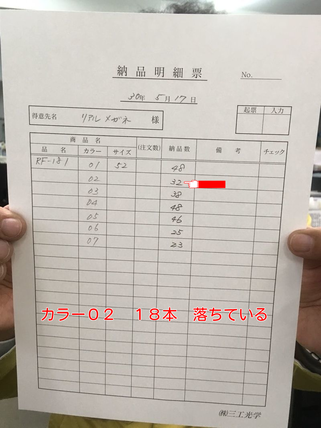 納品明細票
No.
30年 5月 17日
起票 入力
得意先名 リアルメガネ 様
商品名 (注文数) 納品数 備考 チェック
品名 カラー サイズ
RF-181 01 52 48
02 32
03 38
04 48
05 46
06 25
07 23
カラー02 18本 落ちている
㈱三工光学